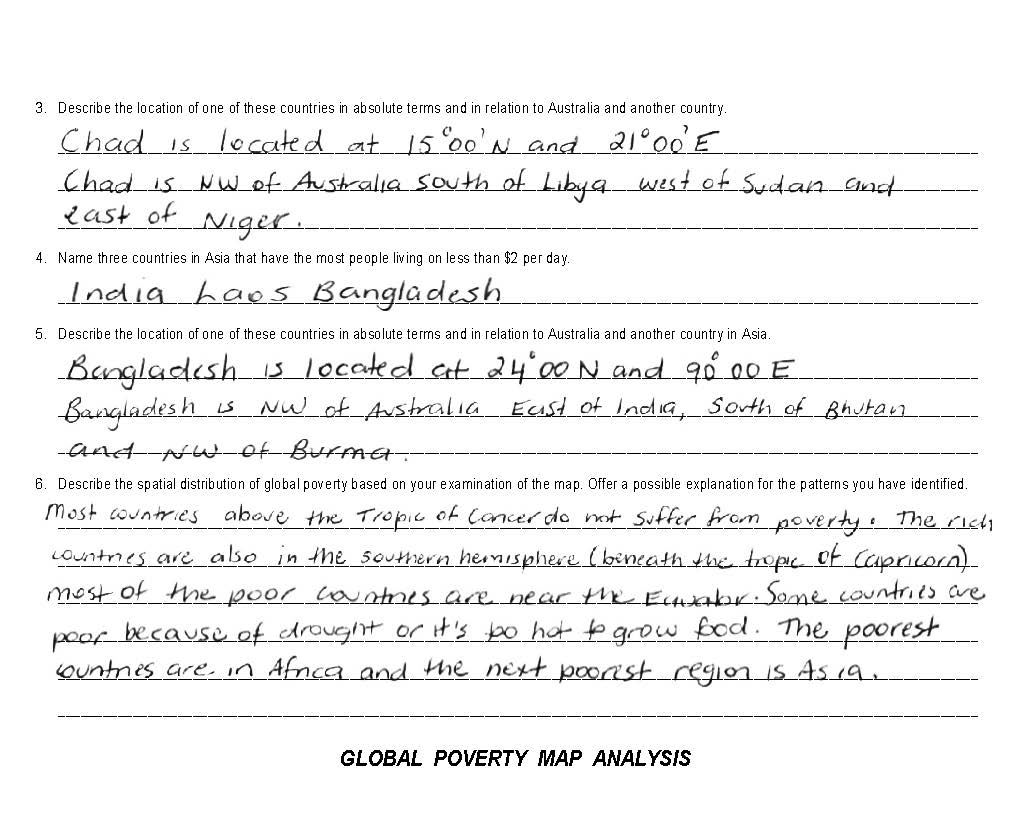 3. Describe the location of one of these countries in absolute terms and in relation to Australia and another country.
Chad is located at 15°00' N and 21°00' E
Chad is NW of Australia south of Libya west of Sudan and
east of Niger.
4. Name three countries in Asia that have the most people living on less than $2 per day.
India Laos Bangladesh
5. Describe the location of one of these countries in absolute terms and in relation to Australia and another country in Asia.
Bangladesh is located at 24°00 N and 90°00 E
Bangladesh is NW of Australia East of India, South of Bhutan
and NW of Burma.
6. Describe the spatial distribution of global poverty based on your examination of the map. Offer a possible explanation for the patterns you have identified.
Most countries above the Tropic of Cancer do not suffer from poverty. The rich
countries are also in the southern hemisphere (beneath the tropic of Capricorn)
most of the poor countries are near the Equator. Some countries are
poor because of drought or it's to hot to grow food. The poorest
countries are in Africa and the next poorest region is Asia.
GLOBAL POVERTY MAP ANALYSIS